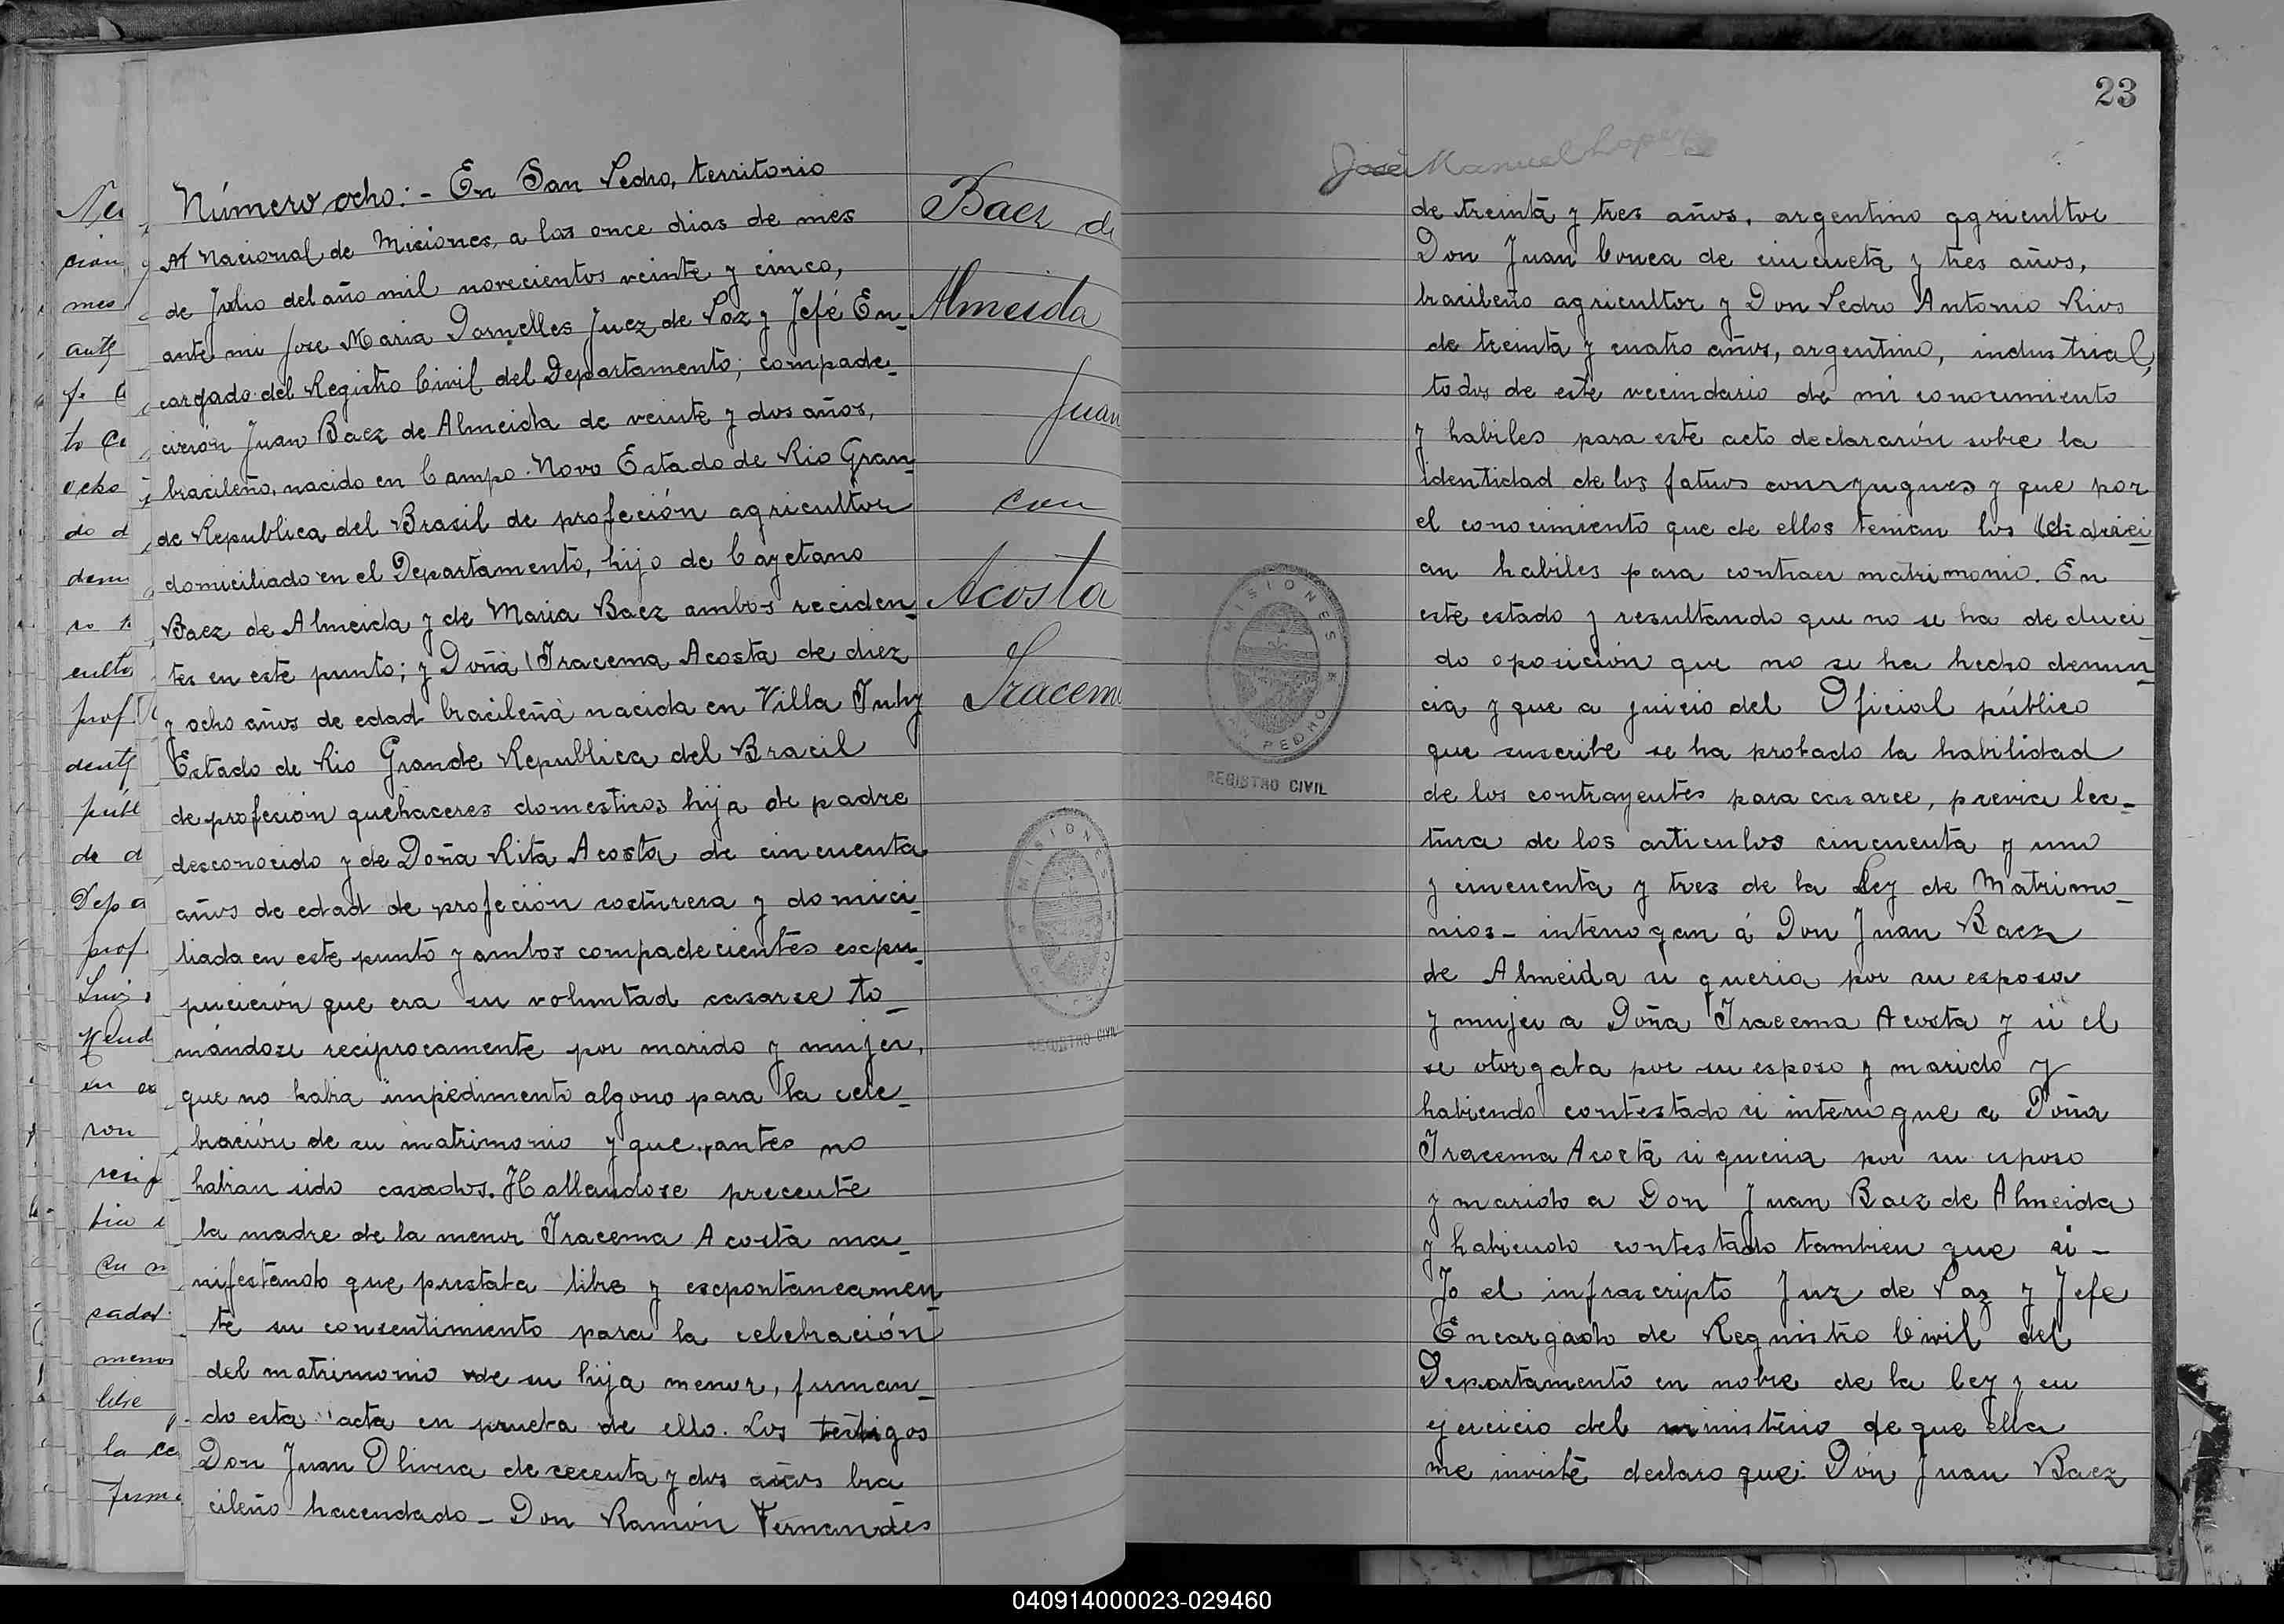 Número ocho:- En San Pedro, territorio
Nacional de Misiones, a los once dias de mes
de Julio del año mil novecientos veinte y cinco,
ante mi Jose Maria Dornelles Juez de Paz y Jefé En-
cargado del Registro Civil del Departamento; compade-
cierón Juan Baez de Almeida de veinte y dos años,
brasileño, nacido en Campo Novo Estado de Rio Gran-
de Republica del Brasil de profeción agricultor
domiciliado en el Departamento, hijo de Cayetano
Baez de Almeida y de Maria Baez ambos reciden-
tes en este punto; y Doña Iracema Acosta de diez
y ocho años de edad brasileña nacida en Villa Juhy
Estado de Rio Grande Republica del Bracil
de profeción quehaceres domesticos hija de padre
desconocido y de Doña Rita Acosta de cincuenta
años de edad de profeción costurera y domici-
liada en este punto y ambos compadecientes escpu-
pucierón que era su voluntad casarse to-
mándose reciprocamente por marido y mujer,
que no habia impedimento algono para la cele-
bración de su matrimonio y que antes no
habian sido casados. Hallandose precente
la madre de la menor Iracema Acosta ma-
nifestando que prestaba libre y escpontaneamen-
te su consentimiento para la celebración
del matrimonio de su hija menor, firman-
do esta acta en prueba de ello. Los testigos
Don Juan Olivera de cecenta y dos años bra
cileño hacendado - Don Ramón Fernandes
Baez de
Almeida
Juan
con
Acosta
Iracema
MISIONES
REGISTRO CIVIL
23
José Manuel Lopez
de treinta y tres años, argentino agricultor
Don Juan Correa de cincueta y tres años,
brasileño agricultor y Don Pedro Antonio Rios
de treinta y cuatro años, argentino, industrial,
todos de este vecindario de mi conocimiento
y habiles para este acto declararón sobre la
identidad de los fatuos conyugues y que por
el conocimiento que de ellos tenian los
an habiles para contraer matrimonio. En
este estado y resultando que no se ha deduci-
do oposición que no se ha hecho denun-
cia y que a juicio del Oficial público
que suscribe se ha probado la habilidad
de los contrayentes para casarce, previa lec-
tura de los articulos cincuenta y uno
y cincuenta y tres de la Ley de Matrimo-
nios- interrogan á Don Juan Baez
de Almeida si queria por su esposa
y mujer a Doña Iracema Acosta y si el
se otorgaba por su esposo y marido y
habiendo contestado si interrogue a Doña
Iracema Acosta si queria por su esposo
y marido a Don Juan Baez de Almeida
y habiendo contestado tambien que si-
Yo el infrascripto Juz de Paz y Jefe
Encargado de Reguistro Civil del
Departamento en nobre de la ley y en
ejercicio del ministerio de que ella
me inviste declaro que: Dón Juan Baez
MISIONES
SAN PEDRO
REGISTRO CIVIL
040914000023-029460